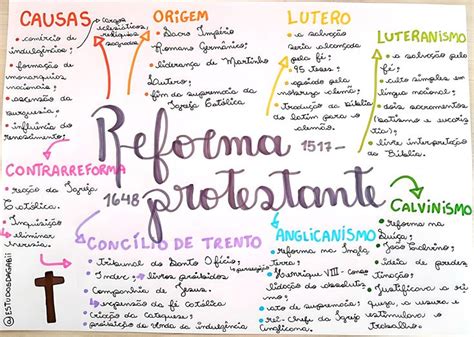 CAUSAS
→ cargos eclesiásticos, relíquias sagradas
• comércio de
indulgências;
• formação de
monarquias
nacionais;
• ascensão da
burguesia;
• influência do
renascimento;
ORIGEM
• Sacro Império
Romano Germânico;
• liderança de Martinho
Lutero;
• fim da supremacia da
Igreja Católica
LUTERO
• a salvação
será alcançada
pela fé;
• 95 teses;
• apoiado pela
nobreza alemã;
• tradução da Bíblia
do latim para o
alemão.
LUTERANISMO
• a salvação pela
fé;
• culto simples em
língua nacional;
• dois sacramentos
(batismo e eucaris
tia);
• livre interpretação
da Bíblia.
Reforma
1517-
1648
protestante
CONTRARREFORMA
• reação da Igreja
Católica.
• Inquisição
→ eliminar
heresia.
CONCÍLIO DE TRENTO
• tribunal do Santo Ofício;
→ perseguição
• Index; → livros proibidos
• Companhia de
Jesus.
→ expansão da fé católica
• criação da catequese;
• proibição da venda da indulgência
ANGLICANISMO
• Reforma na Ingla
terra;
• Henrique VIII - conso
lidação do absolutis
mo;
• ato de supremacia;
• rei - Chefe da Igreja
Anglicana.
CALVINISMO
• reforma na
Suíça;
• João Calvino;
• ideia de predes
tinação;
• Justificava a ri
queza, a usura e
estimulava o
trabalho.
@ESTUDOSDAGABII